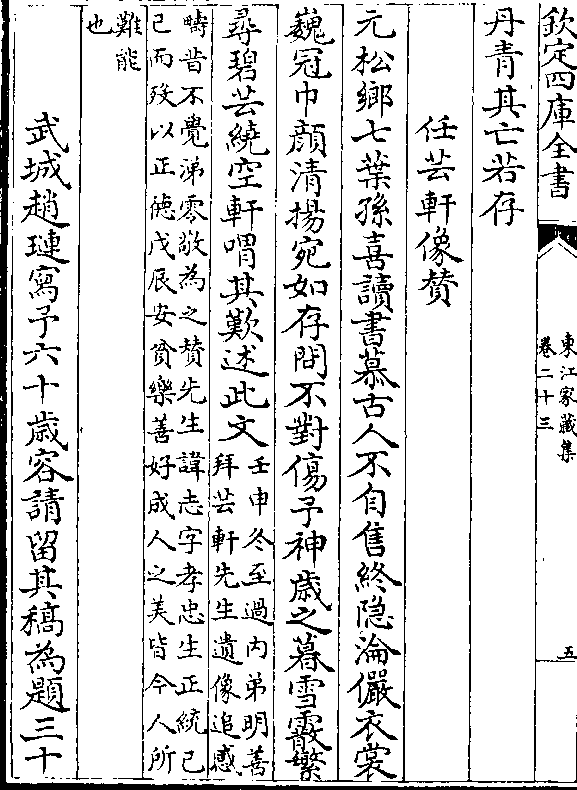 欽定四庫全書
東江家藏集
卷二十三
五
丹青其亡若存
任芸軒像賛
元松鄉七葉孫喜讀書慕古人不自售終隐淪儼衣裳
巍冠巾顔清揚宛如存問不對傷予神歲之暮雪霰繁
尋碧芸繞空軒喟其歎述此文
壬申冬至過内弟明善
拜芸軒先生遺像追感
疇昔不覺涕零敬為之賛先生諱志字孝忠生正統己
已而殁以正徳戊辰安貧樂善好成人之美皆今人所
難能
也
武城趙璉寫予六十歲容請留其稿為題三十